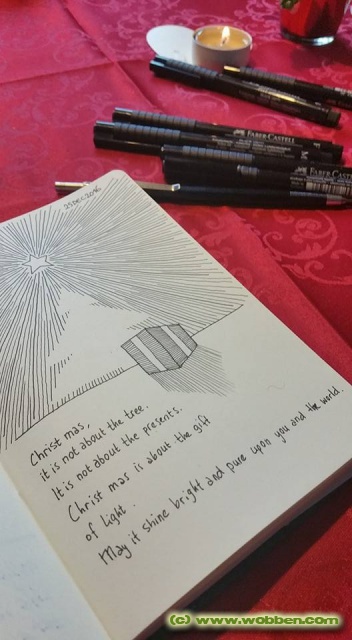 FABER-CASTELL
FABER-CASTE
25 DEC 2016
Christ mas,
it is not about the tree.
It is not about the presents.
Christ mas is about the gift
of light.
May it shine bright and pure upon you and the world.
(c) www.wobben.com